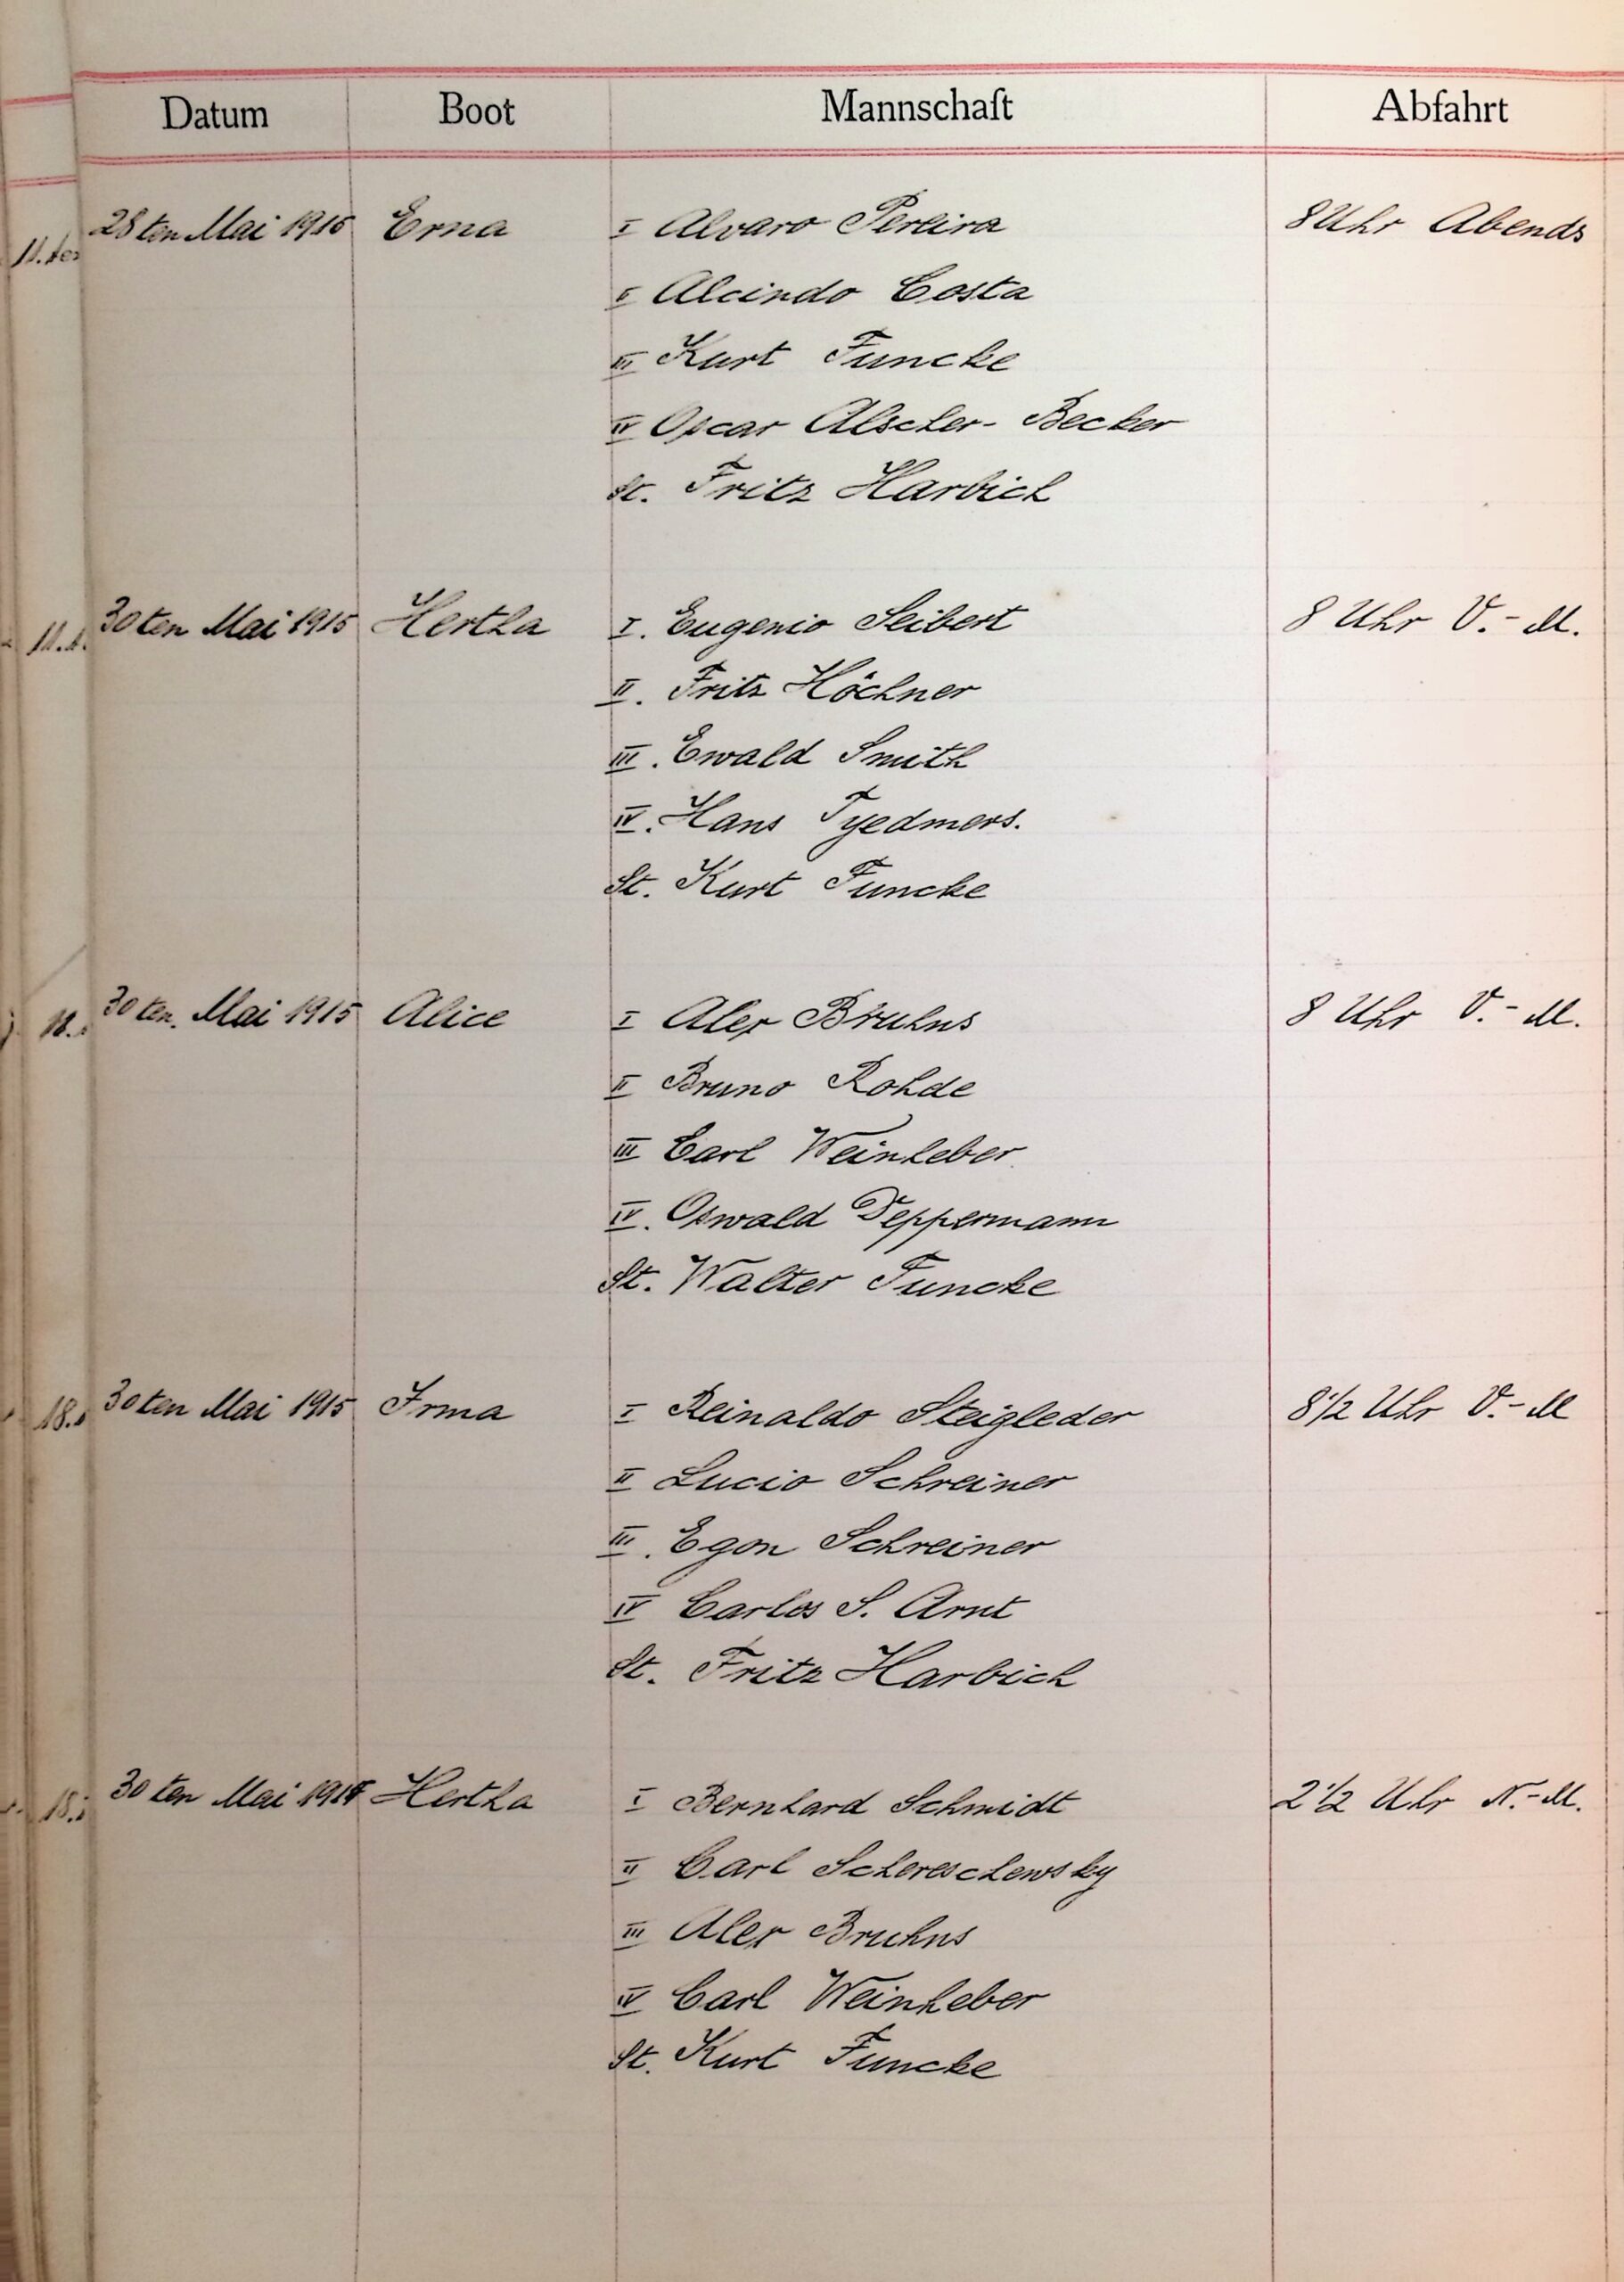 Datum Boot Mannschaft Abfahrt
28ten Mai 1915 Erna I Alvaro Pereira 8 Uhr Abends
II Alcindo Costa
III Kurt Funcke
IV Oscar Alscher-Becker
St. Fritz Harbich
30ten Mai 1915 Hertha I. Eugenio Seibert 8 Uhr V.-M.
II. Fritz Höchner
III. Ewald Smith
IV. Hans Tyedmers.
St. Kurt Funcke
30ten. Mai 1915 Alice I Alex Bruhns 8 Uhr V.-M.
II Bruno Rohde
III Carl Weinheber
IV. Oswald Deppermann
St. Walter Funcke
30ten Mai 1915 Irma I Reinaldo Steigleder 8 1/2 Uhr V.-M
II Lucio Schreiner
III. Egon Schreiner
IV Carlos S. Arnt
St. Fritz Harbich
30ten Mai Hertha I Bernhard Schmidt 2 1/2 Uhr N.-M.
II CarlSchereschewsky
III Alex Bruhns
IV Carl Weinheber
St. Kurt Funcke